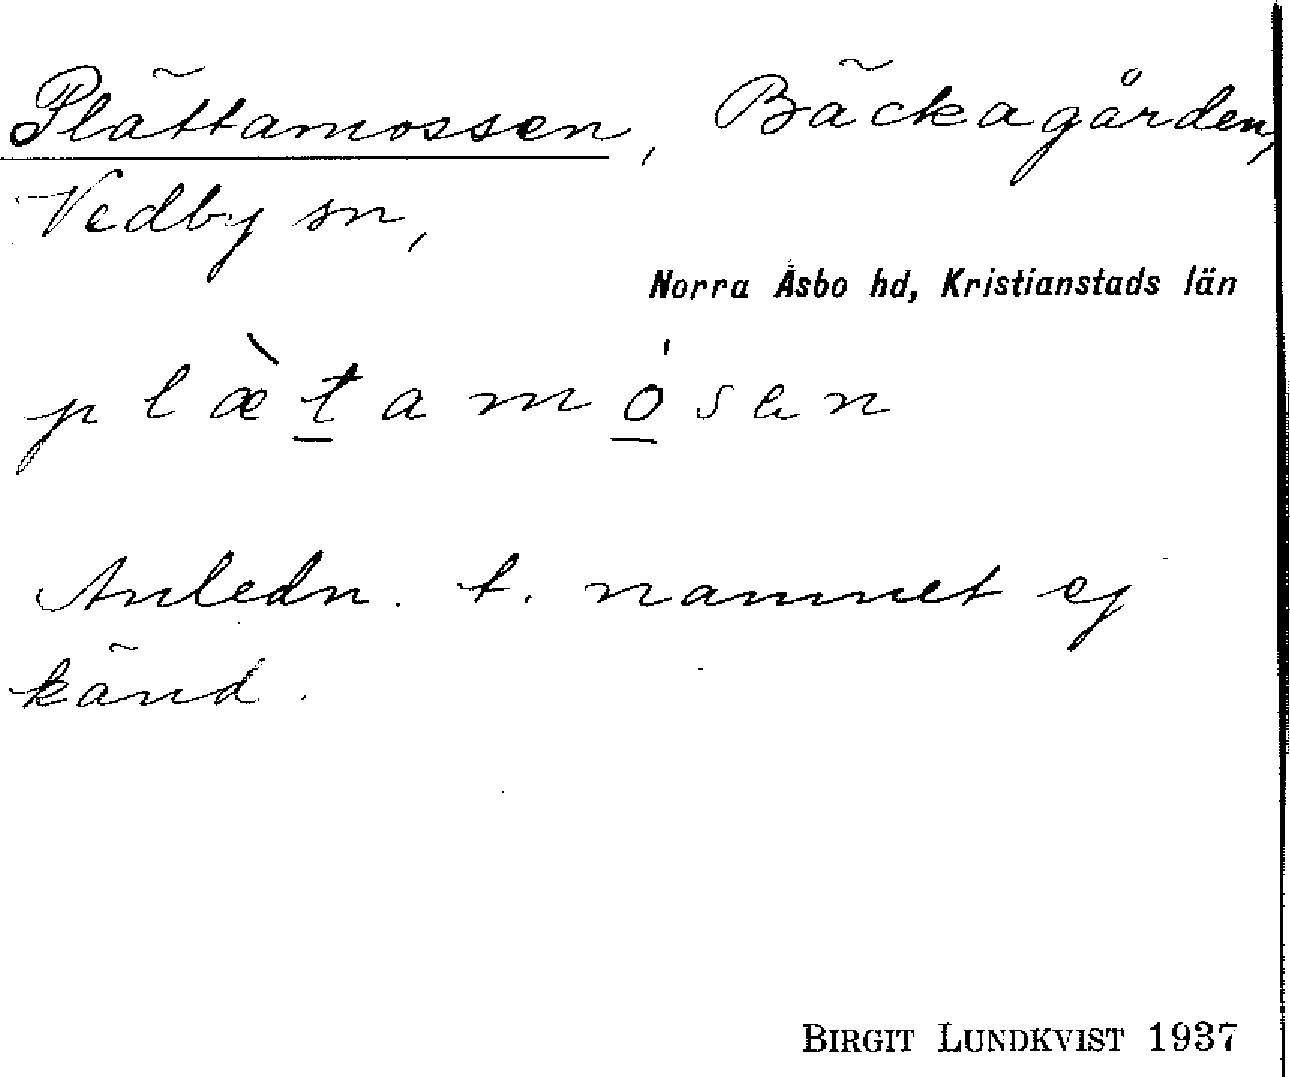 Plättamossen, Bäckagården,
Vedby sn,
Norra Åsbo hd, Kristianstads län
plæ̀tamósen
Anledn. t. namnet ej
känd.
BIRGIT LUNDKVIST 1937